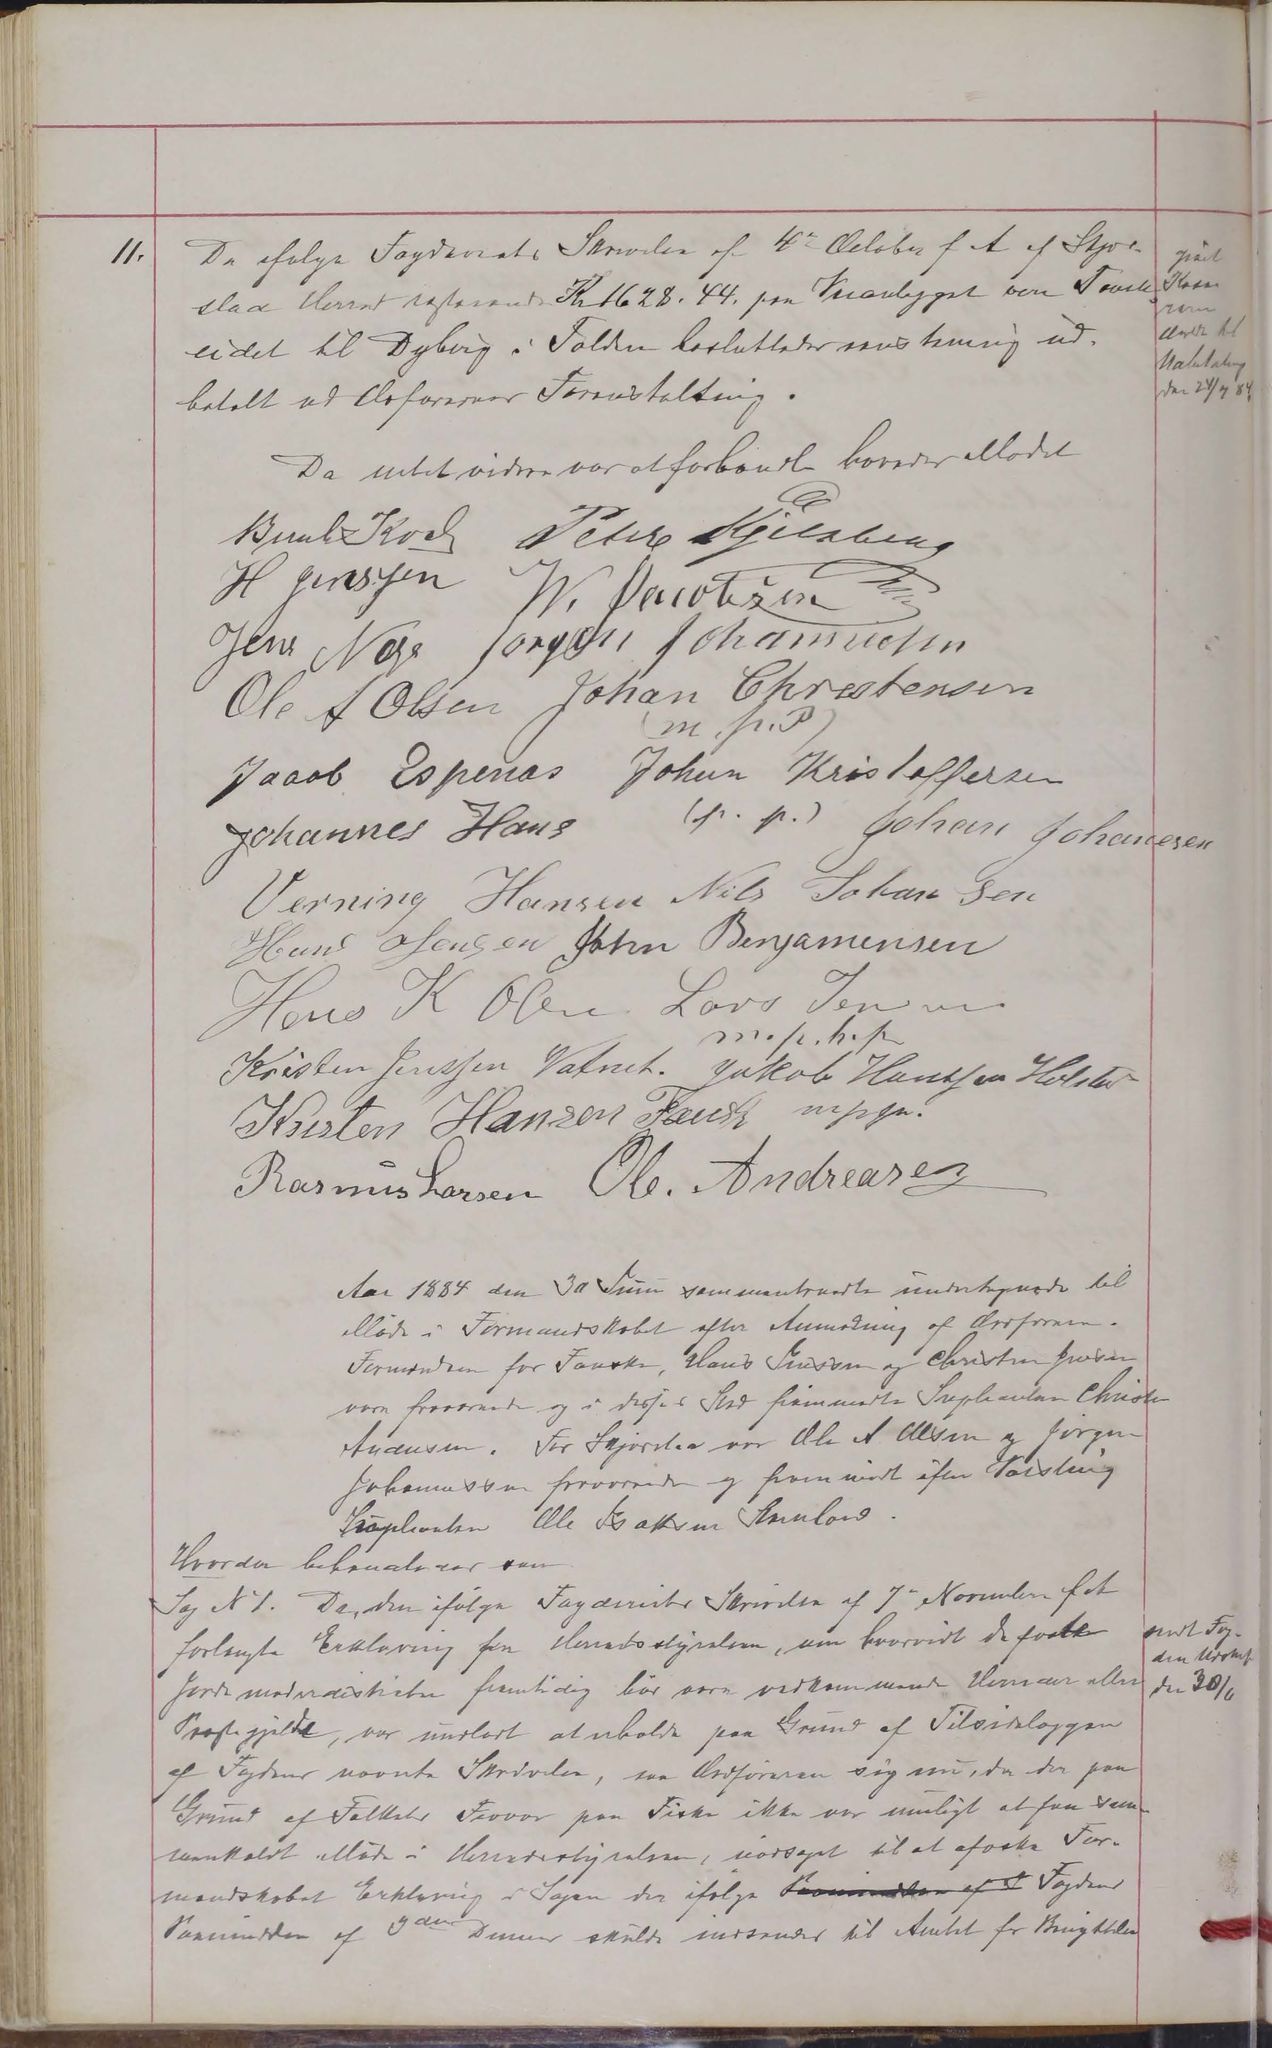 11. De ifølge Fogderiets Skrivelse af 4de October f A af Skjer-
stad Herred resterende Kr 1628.44. paa Veianlægget over Fauske
eidet til Dyberg i Folden besluttedes ud-
betalt ved Ordførerens Foranstaltning.
Da intet videre var at forhandle hævedes Mødet
Koch Peter Kjelsberg
H Jenssen W. Jacobsen
Jens Jørgen Johannesen
Ole A Olsen Johan Christensen
(m. p. P)
Jacob Espenæs Johan Kristoffersen
Johannes Hans (p. p.) Johan Johanesen
Verning Hansen Nils Johansen
Hans Jensen John Benjamensen
Hans K Olsen Lars Jensen
m.p.h.p
Kristen Jenssen Vatnet. Jakob Hanssen
Kristen Hansen Fausk
Rasmus Larsen Ole. Andreasen
Aar 1884 den 30 Juni sammentraadte undertegnede til
Møde i Formandskabet efter Anmodning af Ordføreren.
Formændene for Fauske, Hans Jenssen og Christen Jensen
vare fraværende og i disses Sted fremmødte Supleanten Christen
Andersen. For Skjerstad var Ole A Olsen og Jørgen
Johannessen fraværende og fremmødt efter Varsling
Supleanten Ole Isaksen
Hvorder behandledes som
Sag N 1. Da den ifølge Fogderiets Skrivelse af 7de November f A
forlangte Erklæring fra Herredsstyrelsen, om hvorvidt de faste
Jordemoderdistrikter fremtidig bør være vedkommende Herreder eller
Præstegjeld, var undladt at afholde paa Grund af Tilsidelæggen
af Fogdens nævnte Skrivelse, saa Ordføreren sig nu, da der paa
Grund af Folkets Fravær paa Fiske ikke var muligt at faa sam-
menkaldt Møde i Herredsstyrelsen, nødsaget til at æske For-
mandskabet Erklæring i Sagen der ifølge Fogdens
Paamindelse af 9den Dennes skulde indsendes til Amtet før Benyttelse
sendt Fog-
den Udskrift
den 30/6